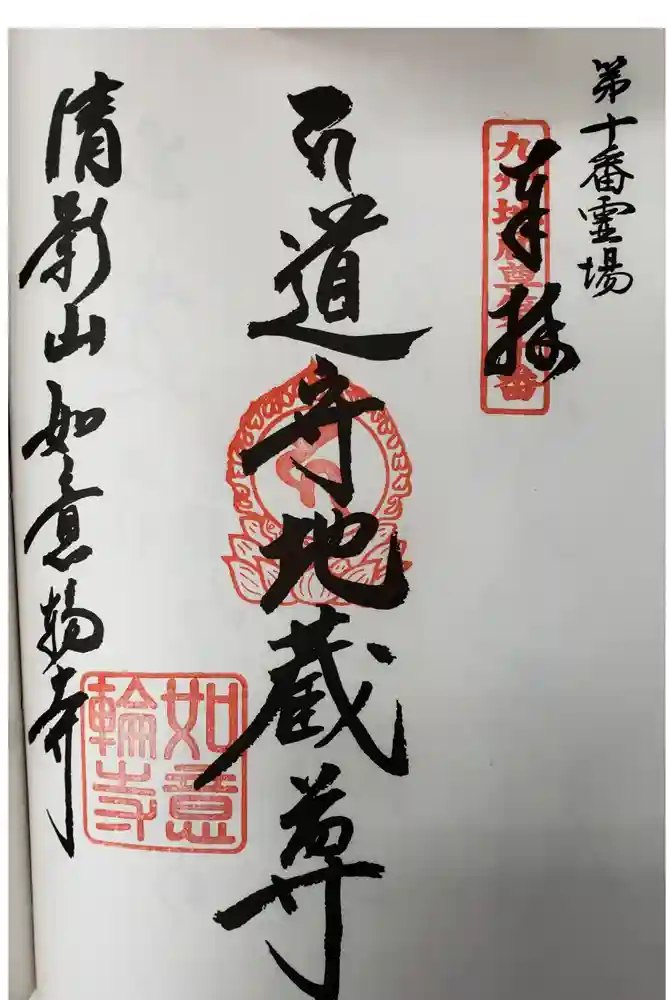 第十番霊場
奉拝
九州地蔵尊第十番
道守地蔵尊
清影山如意輪寺
如意
輪寺